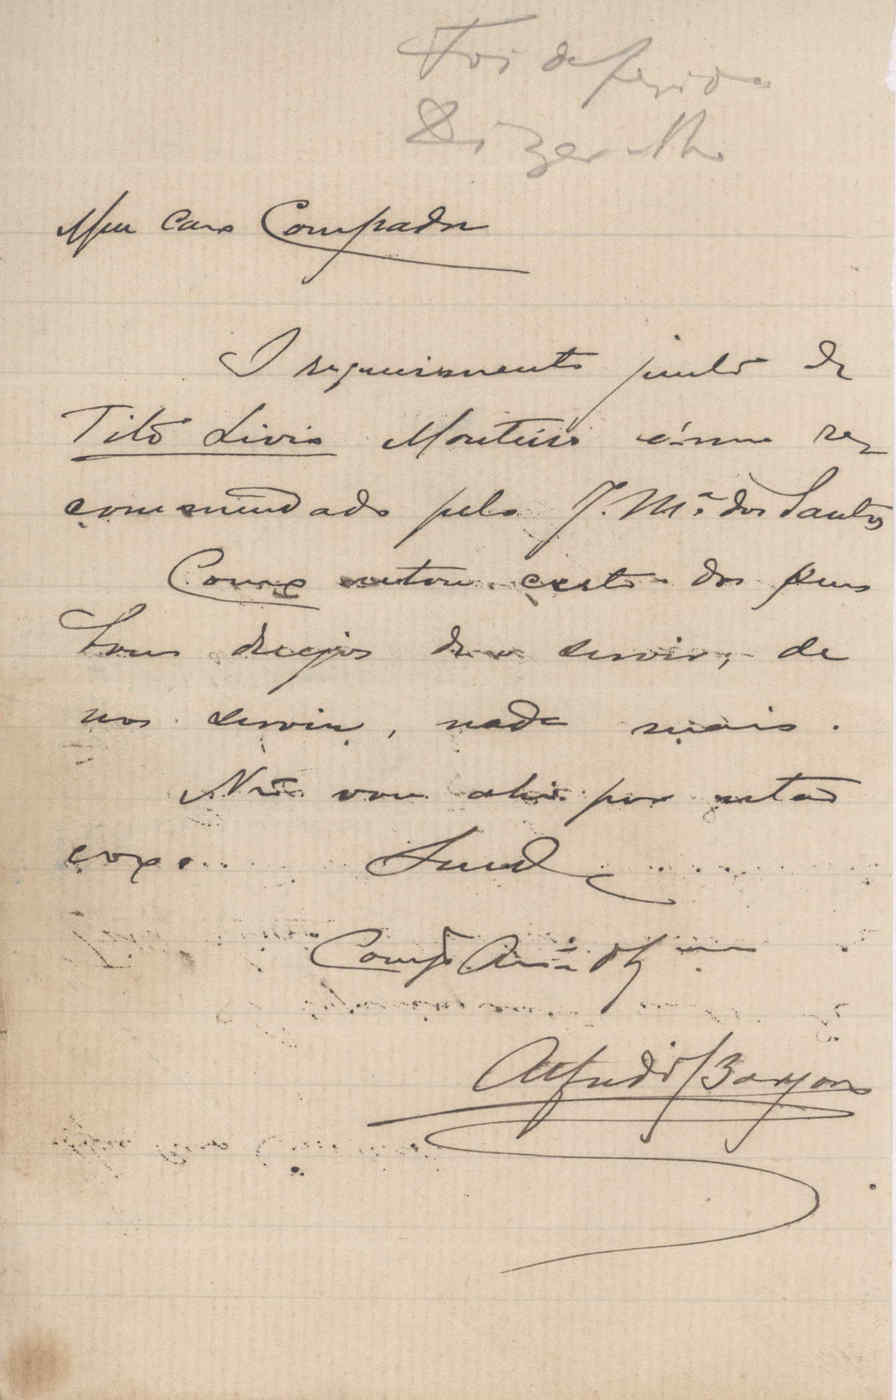 Foi deferido
Dizer-lho
Meu caro Compadre
O requerimento junto de
Tito Livio Monteiro é-me re
commendado pelo J. Mª dos Santos
Como estou certo dos seus
bons desejos de o servir, de
nos servir, nada mais.
Não vou ahi por estar
coxo.
Compe Amº
Alfredo Barjona